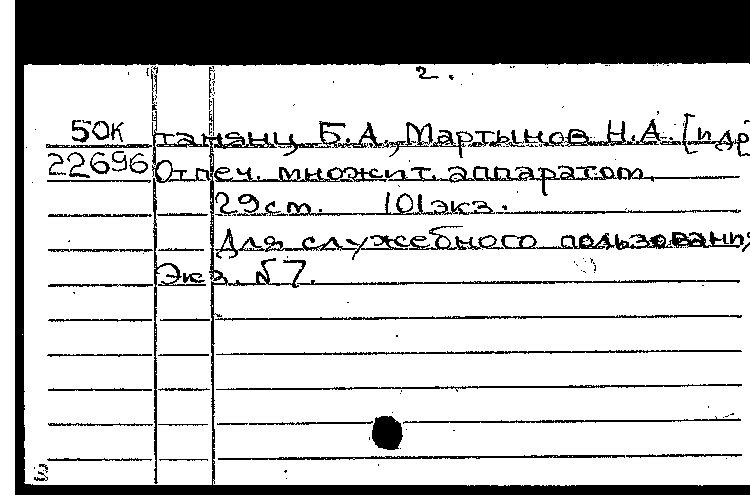 2.
50К танянц Б.А., Мартынов Н.А. [и др]
22696 Отпеч. множит. аппаратом.
29см. 101экз.
Для служебного пользования
Экз. №7.